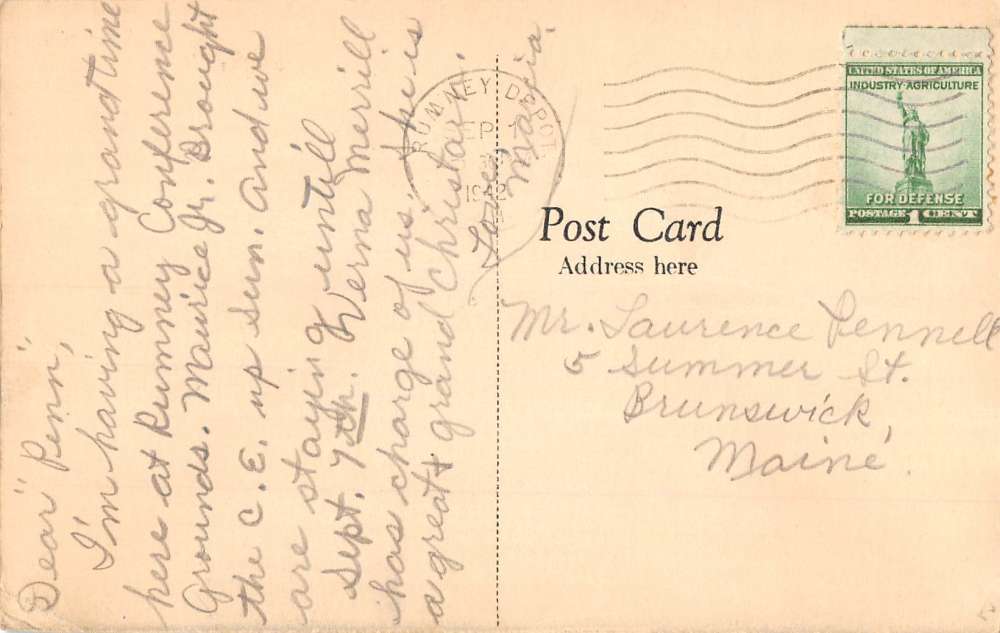 Dear "Penn",
I'm having a grand time
here at Rumney Conference
Grounds. Maurice Jr. Brought
the C. E. up Sun. And we
are staying untill
Sept. 7th. Verna Merrill
has charge of us, & she is
a great & grand Christian.
Love,
RUMNEY DEPOT
SEP 1
UNITED STATES OF AMERICA
INDUSTRY-AGRICULTURE
FOR DEFENSE
POSTAGE 1 CENT
Post Card
Address here
Mr. Laurence Pennell
5 Summer St.
Brunswick,
Maine.